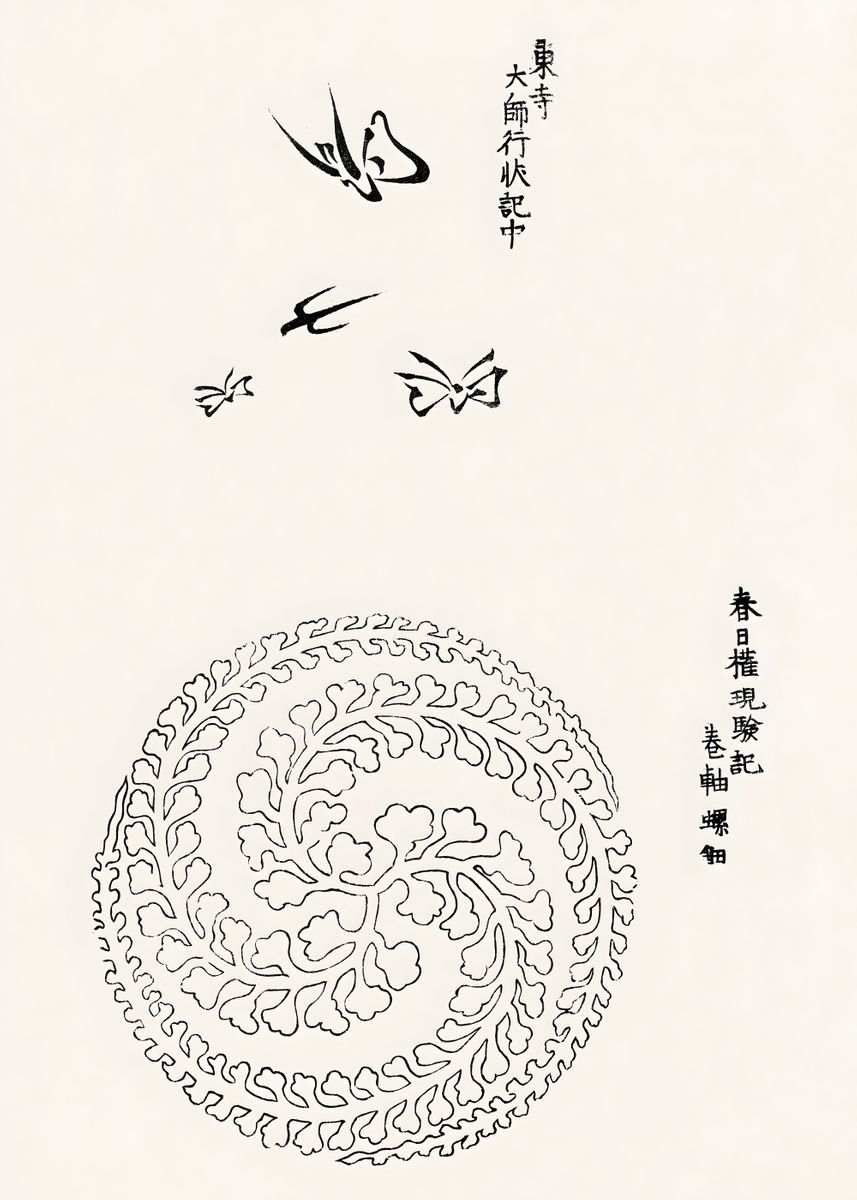 東寺
大師行状記中
春日権現験記
巻軸螺鈿